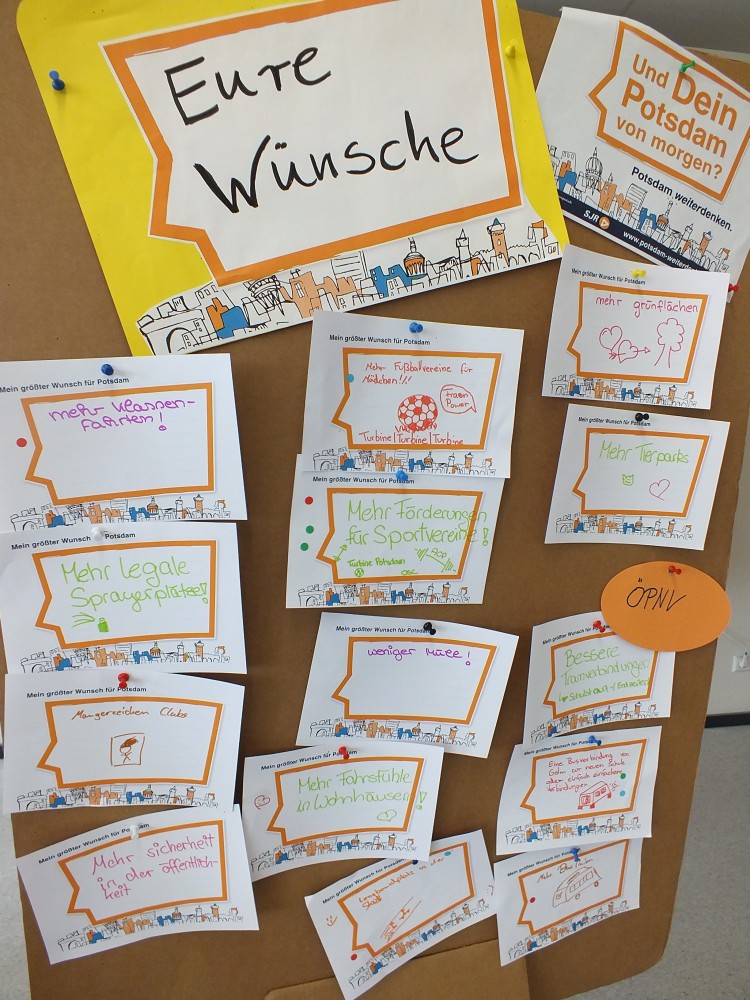 Eure
Wünsche
Und Dein
Potsdam
von morgen?
Potsdam weiterdenken.
SJR
www.potsdam-weiterd
Mein größter Wunsch für Potsdam
mehr grünflächen
Mein größter Wunsch für Potsdam
Mehr Fußballvereine für
Mädchen!!!
frauen
Power
Turbine/Turbine/Turbine
Mein größter Wunsch für Potsdam
mehr klassen-
fahrten!
Mein größter Wunsch für Potsdam
Mehr Tierparks
Mein größter Wunsch für Potsdam
Mehr Förderungen
für Sportvereine!
Turbine Potsdam
OSC
Mein größter Wunsch Potsdam
Mehr Legale
Sprayerplätze!
ÖPNV
Mein größter Wunsch für Potsdam
weniger Müll!
Mein größter Wunsch für
Bessere
Tramverbindungen
Schulstart-/Endzeiten
Mein größter Wunsch für Potsdam
Mangazeichen Clubs
Mein größter Wunsch für Potsdam
Mehr Fahrstühle
in Wohnhäusern!
Mein größter Wunsch für Potsdam
Eine Busverbindung von
Golm zur neuen
oder einfach einfachere
Verbindungen
Mein größter Wunsch für Potsdam
Mehr sicherheit
in der öffentlich-
keit
Mein größter Wunsch für Potsdam
in der
Stadt
Mein größter Wunsch für Potsdam
Mehr